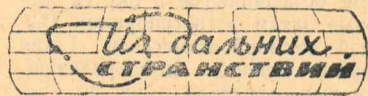 Из дальних
СТРАНСТВИЙ